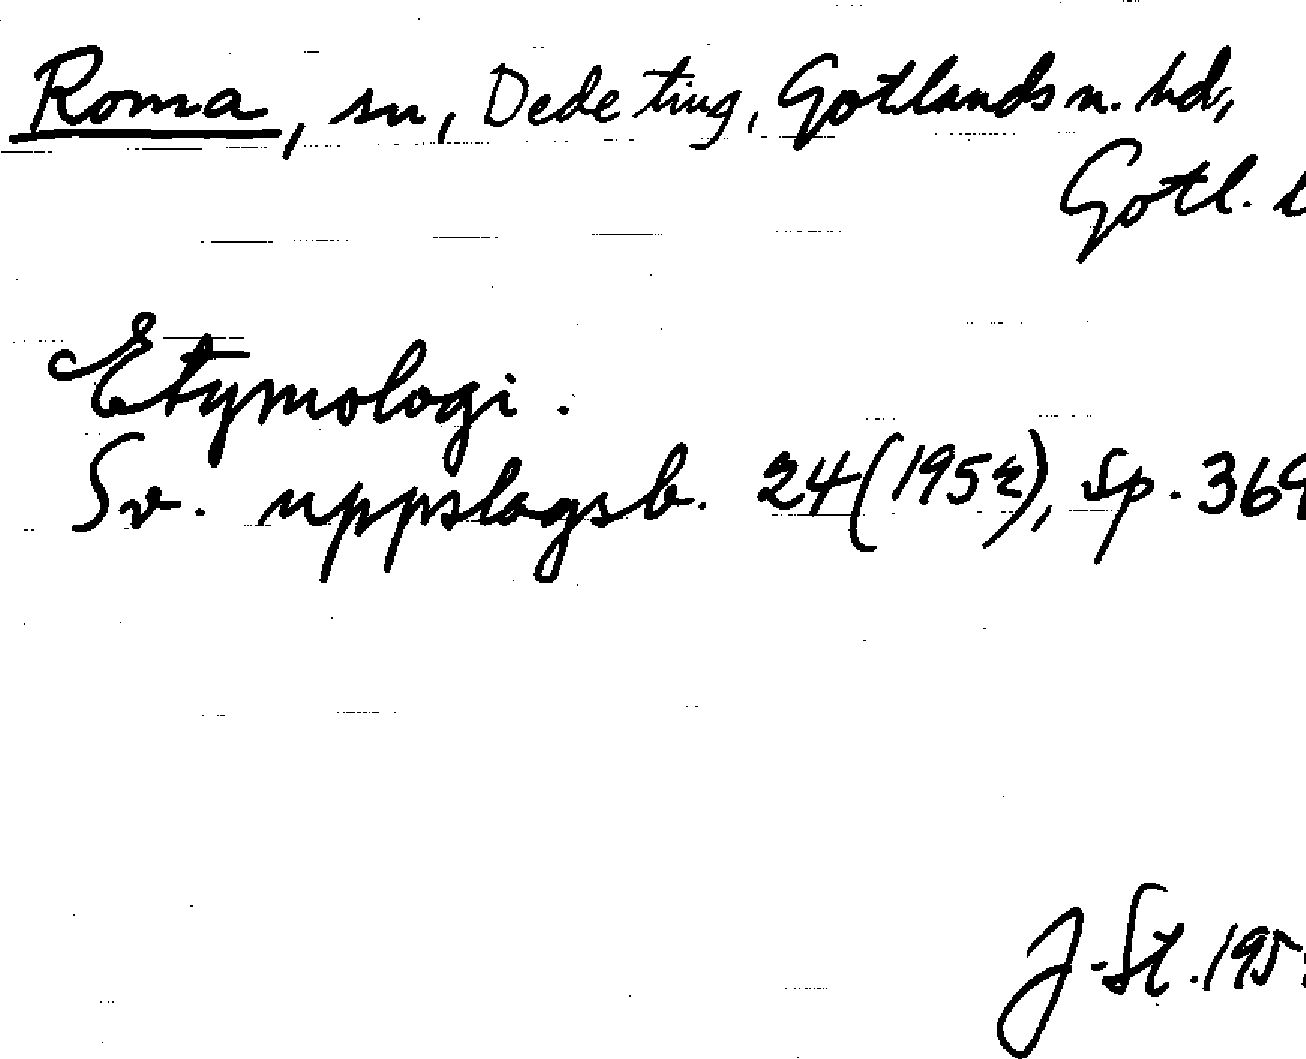 Roma, sn, Dede ting, Gotlands n. hd,
Gotl. l
Etymologi.
Sv. uppslagsb. 24 (1952), sp. 369
J-St. 195